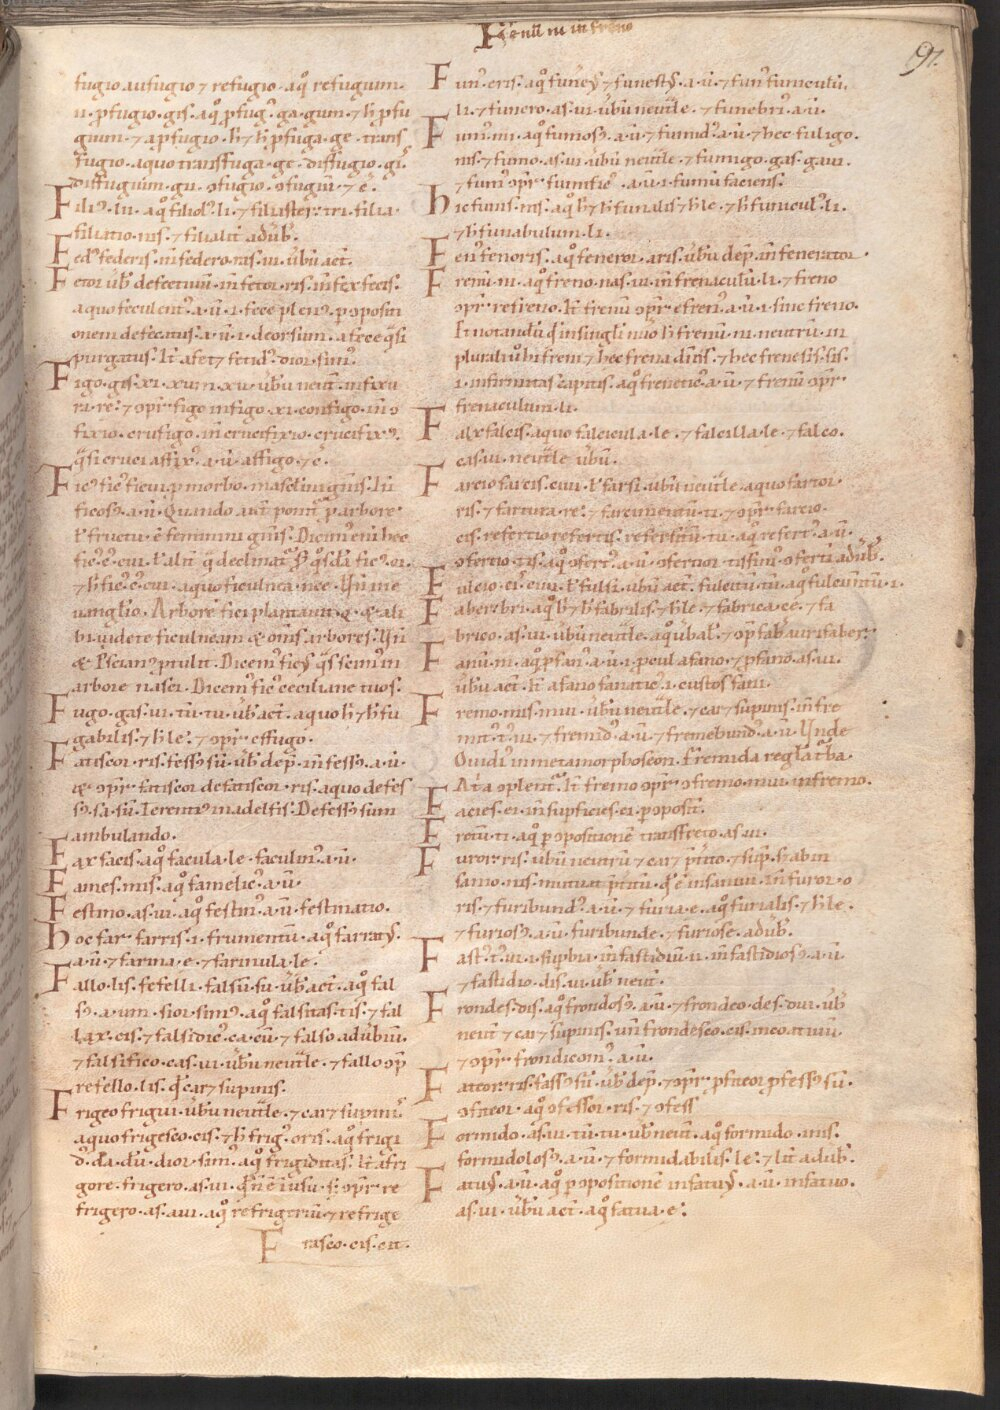 Frenū ni in freno
97.
fugio aufugio ⁊ refugio. aq̊ refugium.
ii. ꝓfugio. gis. aq̊ ꝓfugꝰ. ga. gum. ⁊ h̄ ꝓfu
gium. ⁊ a ꝓfugio. h̄ ⁊ h̄ ꝓfuga. ge. trans
fugio. aquo transfuga. ge. diffugio. gi.
diffugium. gii. ꝯfugio. ꝯfugiū. ⁊ c̄.
Filiꝰ. lii. aq̊ filiolꝰ. li. ⁊ filiaster. tri. filia.
filiatio. nis. ⁊ filialit̄ adūb̄.
Fedꝰ federis. in federo. ras. ui. úbū act̄.
Fetor úb̄ defectiuū. in fetor. ris. in fex fecis.
aquo feculentꝰ. a. ū. i. fece plenꝰ. p ꝯpositi
onem defecatus. a. ū. i. deorsum. a fece q̄si
purgatus. It̄ a fet̄ ⁊ fetidꝰ. dior. simꝰ.
Figo. gis. xi. xum. xu. úbū neut̄. in fixu
ri. re. ⁊ ꝯpr̄. figo infigo. xi. configo. in ꝯ
fixio. crufigo. in crucifixio. crucifixꝰ.
q̄si cruci affixꝰ. a. ū. affigo. ⁊ c̄.
Ficꝰ ficꝰ ficui. ꝓ morbo. masclini gn̄is. In̄
ficosꝰ. a. ū. Quando aut̄ ponit̄ ꝓ arbore
ł fructu. ē feminini gn̄is. Dicimꝰ eni hec
ficꝰ. cꝰ. cui. ł alit̄ q̄ declinat̄.
⁊ h̄ ficꝰ. cꝰ. cui. aquo ficulnea. nee. Vn̄ in e
uanglio. Arbore fici plantauit. ⁊ ali
bi. uidete ficulneam & oīns arbores. Vn̄
& Pscianꝰ ꝓtulit. Dicemꝰ ficꝰ q̄s scimꝰ in
arbore nasci. Dicemꝰ ficꝰ ceciliane tuos.
Fugo. gas. ui. tū. tu. úb̄ act̄. aquo h̄ ⁊ h̄ fu
gabilis. ⁊ h̄ le. ⁊ ꝯpr̄. effugo.
Fatiscor. ris. fessꝰ sū. úb̄ dep̄. in fessꝰ. a. ū.
⁊ ꝯpr̄. fatiscor defatiscor. ris. aquo defes
sꝰ. sa. sū. Terentiꝰ in adelfis. Defessꝰ sum
ambulando.
Fax facis. aq̊ facula. le. faculinꝰ. a. ū.
Fames. mis. aq̊ famelicꝰ. a. ū.
Festino. as. ui. aq̊ festinꝰ. a. ū. festinatio.
Hoc far farris. i. frumentū. aq̊ farratꝰ.
a. ū. ⁊ farina. e. ⁊ farinula. le.
Fallo. lis. fefelli. falsū. su. úb̄ act̄. aq̊ fal
sꝰ. a. um. sior. simꝰ. aq̊ falsitas. tis. ⁊ fal
lax. cis. ⁊ falsidicꝰ. ca. cū. ⁊ falso adúbiū.
⁊ falsifico. cas. ui. úbū neut̄le. ⁊ fallo ꝯp̄r
refello. lis. q̄ car& supinis.
Frigeo frigui. úbū neut̄le. ⁊ car& supinꝰ.
aquo frigesco. cis. ⁊ h̄ frigꝰ. oris. aq̊ frigi
dꝰ. da. dū. dior. simꝰ. aq̊ frigiditas. It̄ a fri
gore. frigero. as. ui. q̄ n̄ ē in usu. s; ꝯpr̄. re
frigero. as. aui. aq̊ refrigeriū. ⁊ refrige
Frasco. cis. cit.
Funꝰ. eris. aq̊ funeꝰ ⁊ funestꝰ. a. ū. ⁊ funꝰ funiculū.
li. ⁊ funero. as. ui. úbū neut̄le. ⁊ funebrꝰ. a. ū.
Fumꝰ. mi. aq̊ fumosꝰ. a. ū. ⁊ fumidꝰ. a. ū. ⁊ hec fuligo.
nis. ⁊ fumo. as. ui. úbū neut̄le. ⁊ fumigo. gas. gaui.
⁊ fumꝰ ꝯpr̄. fumificꝰ. a. ū. i. fumū faciens.
Hic funis. nis. aq̊ h̄ ⁊ h̄ funalis. ⁊ h̄ le. ⁊ h̄ funiculꝰ. li.
⁊ h̄ funabulum. li.
Fenꝰ fenoris. aq̊ feneror. aris. úbū dep̄. in fenerator.
Frenū. ni. aq̊ freno. nas. ui. in frenaculū. li. ⁊ freno
ꝯpr̄. refreno. It̄ frenū ꝯpr̄. effrenꝰ. a. ū. i. sine freno.
Et notandū q̄ in singlri nūo h̄ frenū. ni. neutrū. in
plurali ú̊ hi freni ⁊ hec frena dicis. ⁊ hec frenesis. sis.
i. infirmitas capitis. aq̊ freneticꝰ. a. ū. ⁊ frenū ꝯpr̄.
frenaculum. li.
Falx falcis. aquo falcicula. le. ⁊ falcilla. le. ⁊ falco.
cas. ui. neut̄le úbū.
Farcio farcis. ciui. ł farsi. úbū neut̄le. aquo fartor.
ris. ⁊ fartura. re. ⁊ farcimentū. ti. ⁊ ꝯpr̄. farcio.
cis. refercio refercis. refertū. tu. aq̊ refertꝰ. a. ū.
ꝯfercio. cis. aq̊ ꝯfertꝰ. a. ū. ꝯfertior. tissimꝰ. ꝯfertī adūb̄.
Fulcio. cis. ciui. ł fulsi. úbū act̄. fulcitū. tu. aq̊ fulcimtū. i.
Faber. bri. aq̊ h̄ ⁊ h̄ fabrilis. ⁊ h̄ le. ⁊ fabrica. ce. ⁊ fa
brico. as. ui. úbū neut̄le. aq̊ úbal̄. ⁊ ꝯpr̄ fab̄ aurifaber.
Fanū. ni. aq̊ ꝓfanꝰ. a. ū. i. ꝓcul a fano. ⁊ ꝓfano. as. ui.
úbū act̄. It̄ a fano fanaticꝰ. i. custos fani.
Fremo. mis. mui. úbū neut̄le. ⁊ car& supinis. in fre
mitꝰ. tꝰ. ui. ⁊ fremidꝰ. a. ū. ⁊ fremebundꝰ. a. ū. Vnde
Ouidiꝰ in metamorphoseon. Fremida regl̄a t̄ba.
Ata ꝯplent̄. It̄ fremo ꝯpr̄. ꝯfremo. mui. infremo.
Facies. ei. in supficies. ei. p ꝯposit̄.
Fretū. ti. aq̊ p ꝯpositionē transfreto. as. ui.
Furor. ris. úbū neutrū ⁊ car& p̄tito. ⁊ sup̄. s; ab in
sanio. nis. mutuat̄ p̄titū. q̄ ē insaniui. in furor. o
ris. ⁊ furibundꝰ. a. ū. ⁊ furia. e. aq̊ furialis. ⁊ h̄ le.
⁊ furiosꝰ. a. ū. furibunde. ⁊ furiose. adūb̄.
Fastꝰ. tꝰ. ui. i. supbia. in fastidiū. ii. in fastidiosꝰ. a. ū
⁊ fastidio. dis. ui. úb̄ neut̄.
Frondes. dis. aq̊ frondosꝰ. a. ū. ⁊ frondeo. des. dui. úb̄
neut̄ ⁊ car& supinis. un̄ frondesco. cis. incoatiuū
⁊ ꝯpr̄. frondicomꝰ. a. ū.
Fateor. ris. fassꝰ sū. úb̄ dep̄. ⁊ ꝯpr̄. ꝓfiteor ꝓfessꝰ sū.
ꝯfiteor. aq̊ ꝯfessor. ris. ⁊ ꝯfess
Formido. as. ui. tū. tu. úb̄ neut̄. aq̊ formido. inis.
formidolosꝰ. a. ū. ⁊ formidabilis. le. ⁊ lit̄ adūb̄.
Fatuꝰ. a. ū. aq̊ p ꝯpositionē infatuꝰ. a. ū. infatuo.
as. ui. úbū act̄. aq̊ fatua. e.